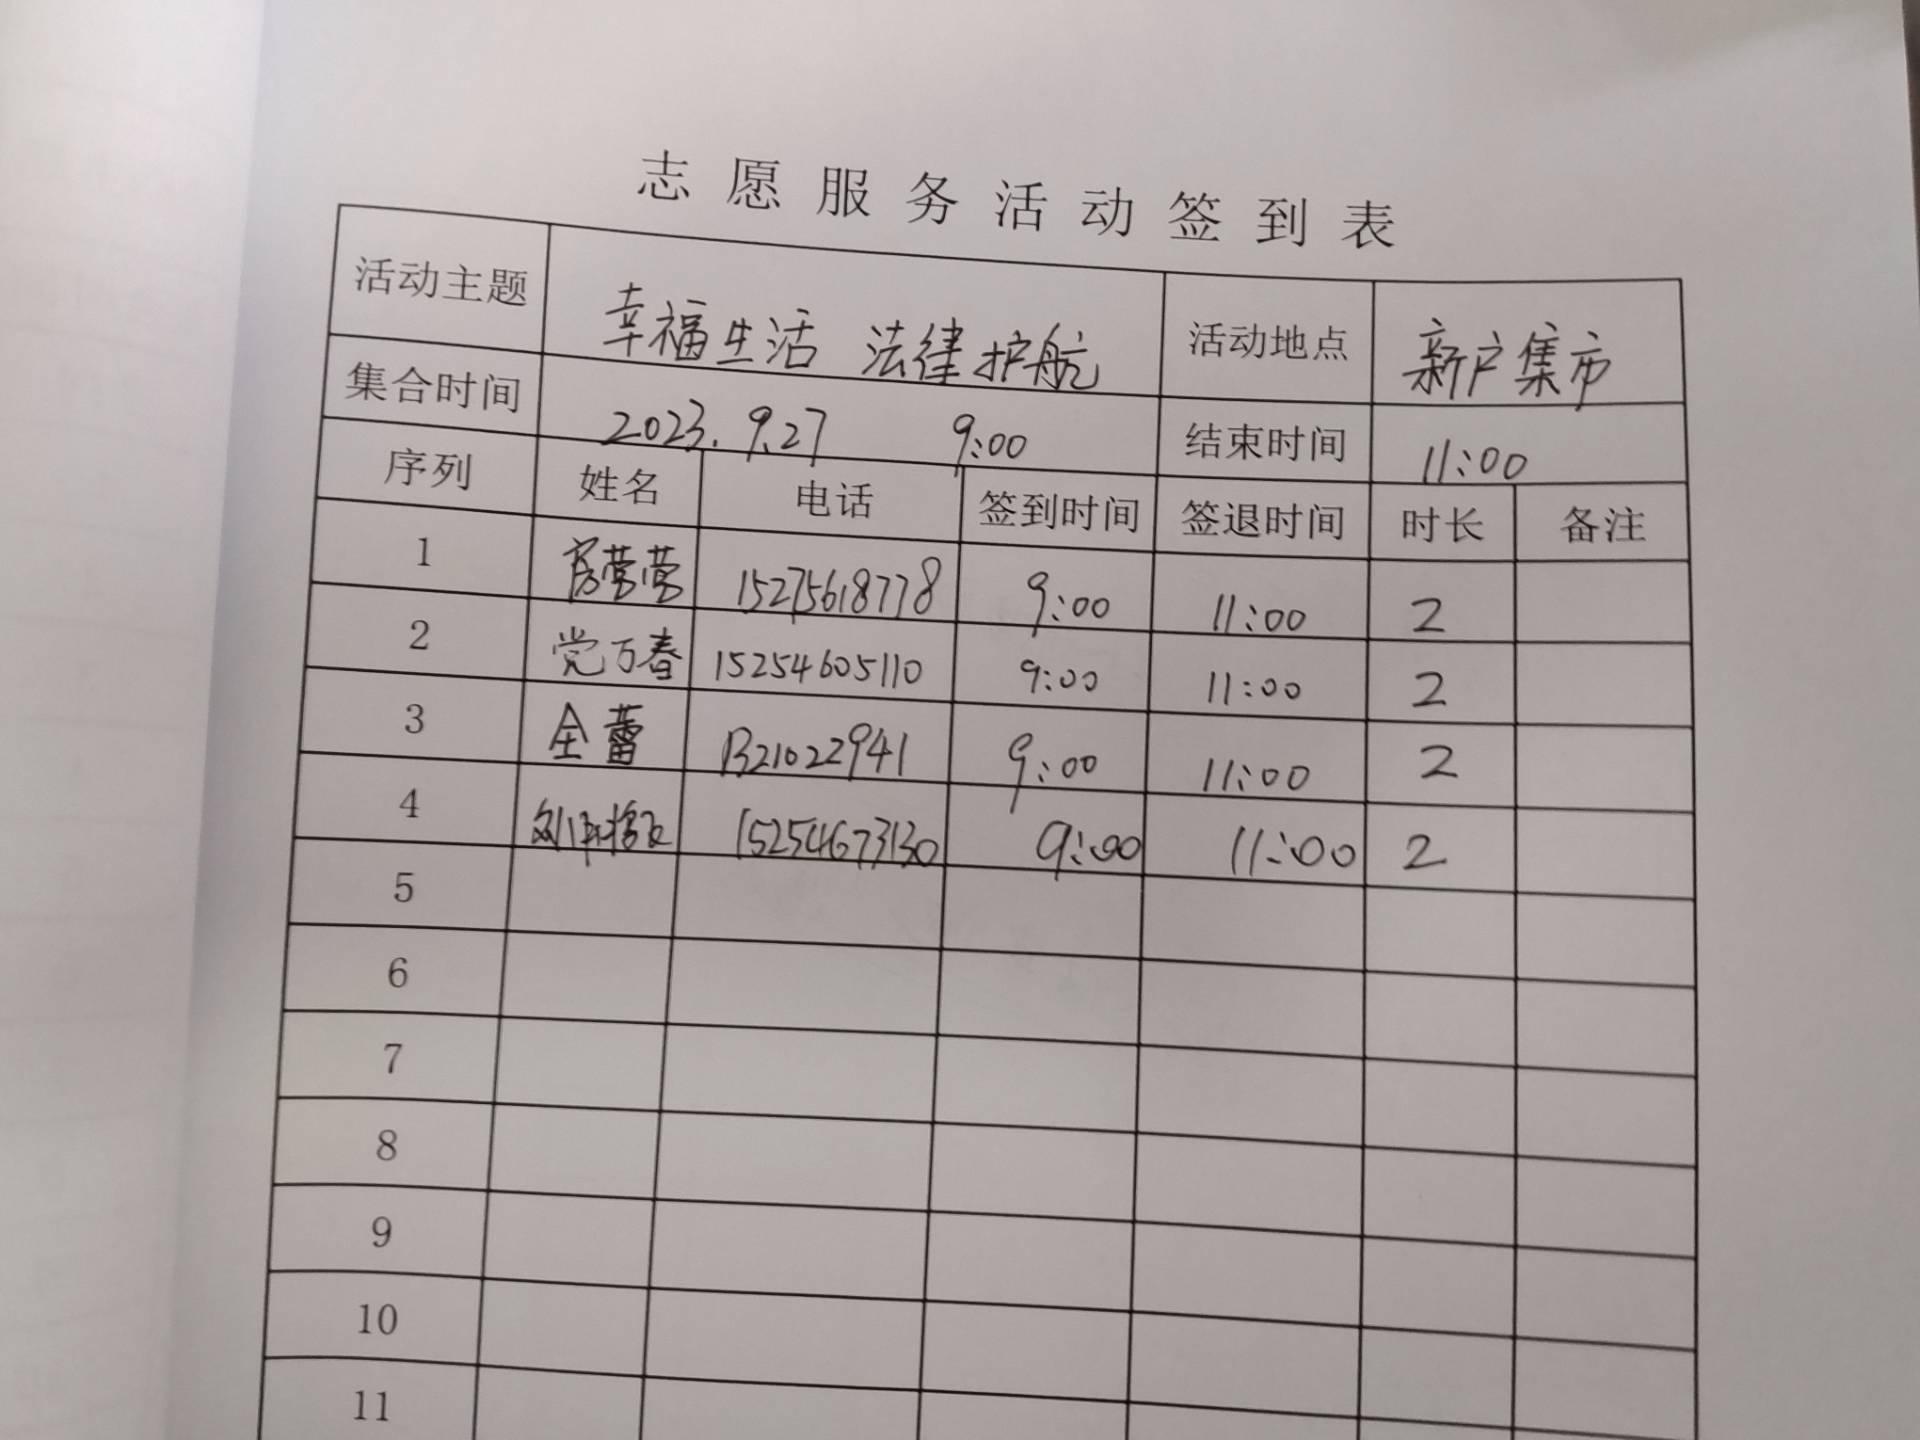 志愿服务活动签到表
活动主题 幸福生活 法律护航 活动地点 新户集市
集合时间 2023.9.27 9:00 结束时间 11:00
序列 姓名 电话 签到时间 签退时间 时长 备注
1 房营营 15275618778 9:00 11:00 2
2 党万春 15254605110 9:00 11:00 2
3 全蕾 1321022941 9:00 11:00 2
4 15254673130 9:00 11:00 2
5
6
7
8
9
10
11